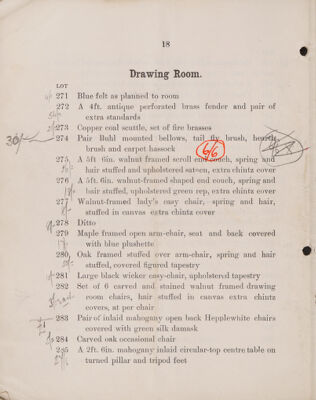 18
Drawing Room.
LOT
271 Blue felt as planned to room
272 A 4ft. antique perforated brass fender and pair of
extra standards
273 Copper coal scuttle, set of fire brasses
30/- 274 Pair Buhl mounted bellows, tail fly brush, hearth
brush and carpet hassock
6/6
275 A 5ft 6in. walnut framed scroll end couch, spring and
hair stuffed and upholstered sateen, extra chintz cover
276 A 5ft. 6in. walnut-framed shaped end couch, spring and
hair stuffed, upholstered green rep, extra chintz cover
277 Walnut-framed lady's easy chair, spring and hair,
stuffed in canvas extra chintz cover
278 Ditto
279 Maple framed open arm-chair, seat and back covered
with blue plushette
280 Oak framed stuffed over arm-chair, spring and hair
stuffed, covered figured tapestry
281 Large black wicker easy-chair, upholstered tapestry
282 Set of 6 carved and stained walnut framed drawing
room chairs, hair stuffed in canvas extra chintz
covers, at per chair
283 Pair of inlaid mahogany open back Hepplewhite chairs
covered with green silk damask
284 Carved oak occasional chair
285 A 2ft. 6in. mahogany inlaid circular-top centre table on
turned pillar and tripod feet